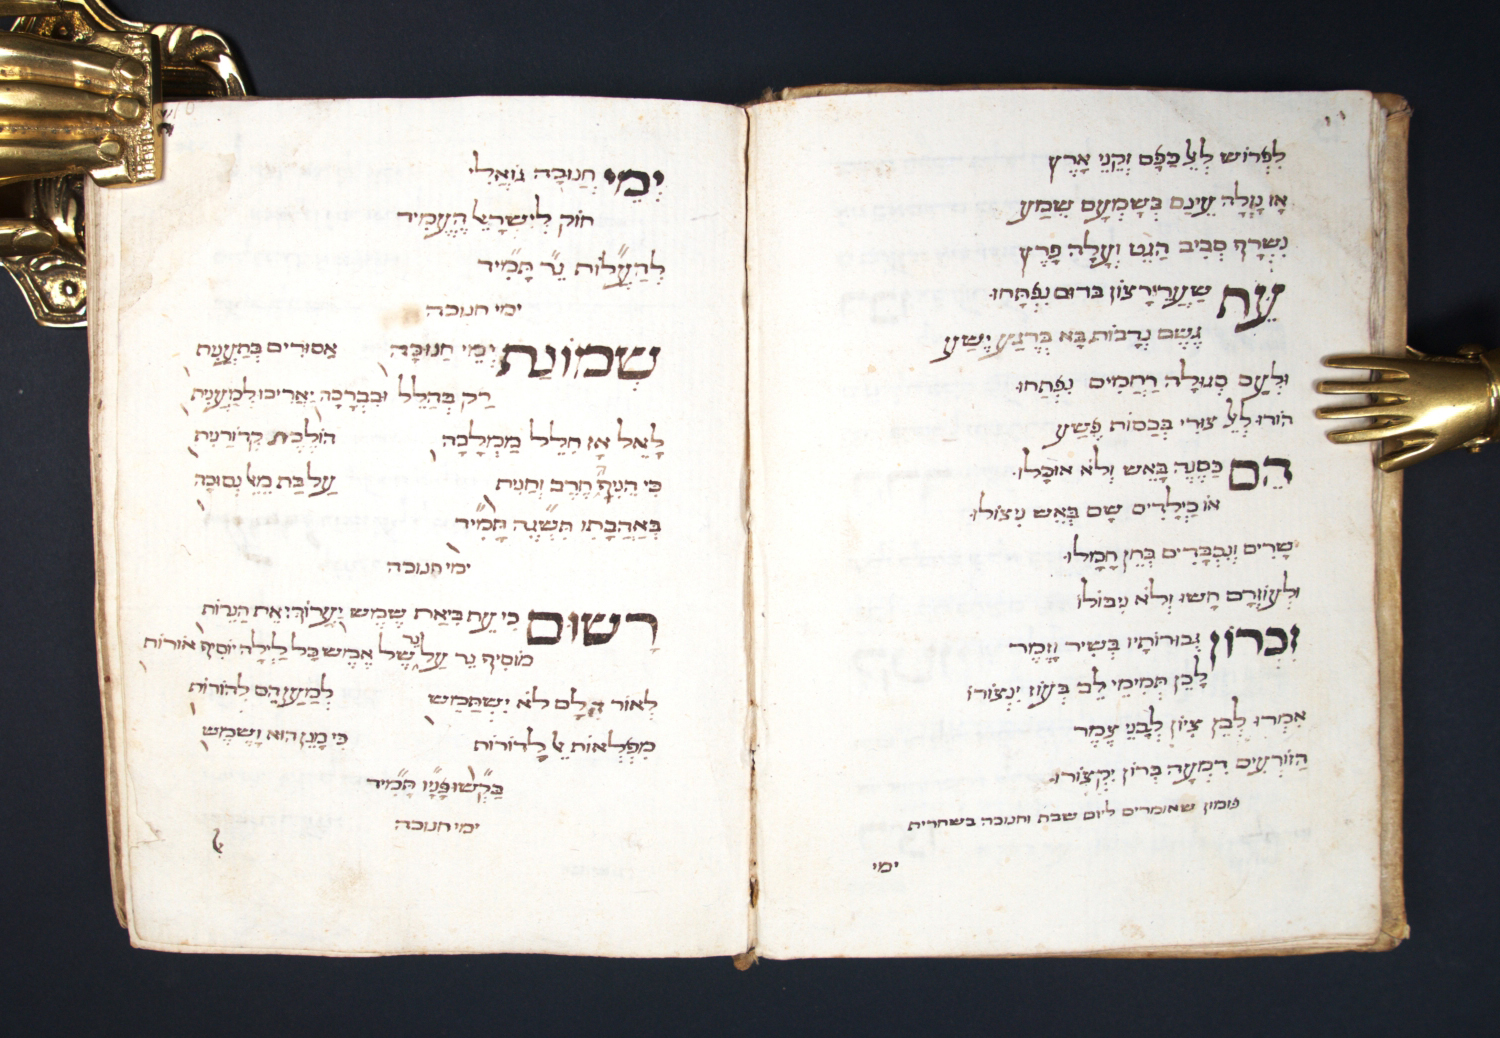 לִפְרוֹשׂ לְאֵל כַּפָּם זִקְנֵי אָרֶץ
אָז נָזְלָה עֵינָם בְּשָׁמְעָם שֵׁמַע
נִשְׂרָף סְבִיב הַגֵּט וְעָלָה פָּרֶץ
עֵת שַׁעֲרֵי רָצוֹן ברום נִפְתָּחוּ
גֶּשֶׁם נְדָבוֹת בָּא בְּרֶגַע יֶשַׁע
וּלְעַם סְגוּלָּה רַחֲמִים נִפְתָּחוּ
הוֹדוּ לְאֵל צוּרִי בְּכַסּוֹת פֶּשַׁע
הֵם כַּסְּנֶה בָּאֵשׁ וְלֹא אוּכָּלוּ
אוֹ כִּילָדִים שָׁם בְּאֵשׁ נִיצּוֹלוּ
שָׂרִים וְנִכְבָּדִים בְּחֵן חָמָלוּ
וּלְעוֹזְרָם חָשׁוּ וְלֹא נִיבּוֹלוּ
זִכְרוֹן גְּבוּרוֹתָיו בְּשִׁיר וָזֶמֶר
לָכֵן תְּמִימֵי לֵב בְּעוֹז יִנְצוֹרוּ
אִמְרוּ לְבֵן צִיּוֹן לְבָנֵי צֶמֶר
הַזּוֹרְעִים דִּמְעָה בְּרוֹן יִקְצוֹרוּ
פזמון שאומרים ליום שבת וחנוכה בשחרית
ימי
יְמֵי חֲנוּכָּה גּוֹאֲלִי
חוֹק לְיִשְׂרָאֵל הֶעֱמִיד
לְהַעֲלוֹת נֵר תָּמִיד
ימי חנוכה
שְׁמוֹנַת יְמֵי חֲנוּכָּה אֲסוּרִים בְּתַעֲנִת
רַק בְּהַלֵּל וּבִבְרָכָה יַאֲרִיכוּ לְמַעֲנִית
לָאֵל אָז חִלֵּל מַמְלָכָה הוֹלֶכֶת קְדוֹרַנִּית
כִּי הֵנִיף חֶרֶב וַחֲנִית עַל בַּת אֵל נְסוּכָה
בְּאַהֲבָתוֹ תִּשְׁגֶּה תָּמִיד
ימי חנוכה
רָשׁוּם כִּי עֵת בִּיאַת שֶׁמֶשׁ יַעֲרוֹךְ אֶת הַנֵּרוֹת
מוֹסִיף נֵר עַל נר שֶׁל אֶמֶשׁ בְּכָל לַיְלָה יוֹסִיף אוֹרוֹת
לְאוֹר הָלָּם לֹא יִשְׁתַּמֵּשׁ לְמַעַן הֵם לְהוֹרוֹת
מִפְלְאוֹת אֵל לָדוֹרוֹת כִּי מָגֵן הוּא וָשֶׁמֶשׁ
בַּקְּשׁוּ פָנָיו תָּמִיד
ימי חנוכה